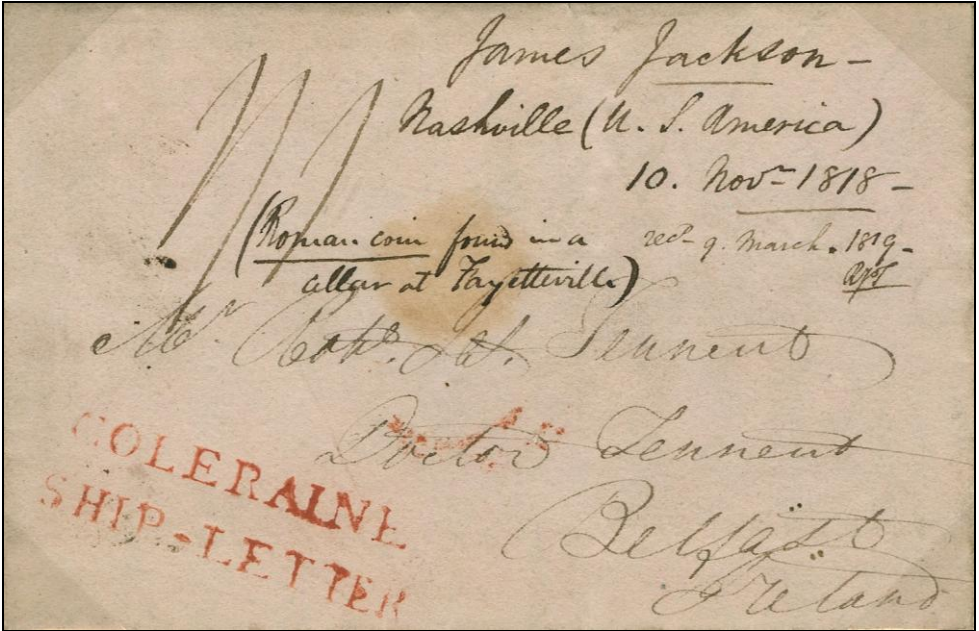 James Jackson -
Nashville (U. S. America)
10. Novr 1818 -
(Roman coin found in a
cellar at Fayetteville)
recd 9. March. 1819 -
Mr. Robt. Jas. Tennent
Doctor Tennent
Belfast
Ireland
COLERAINE
SHIP-LETTER